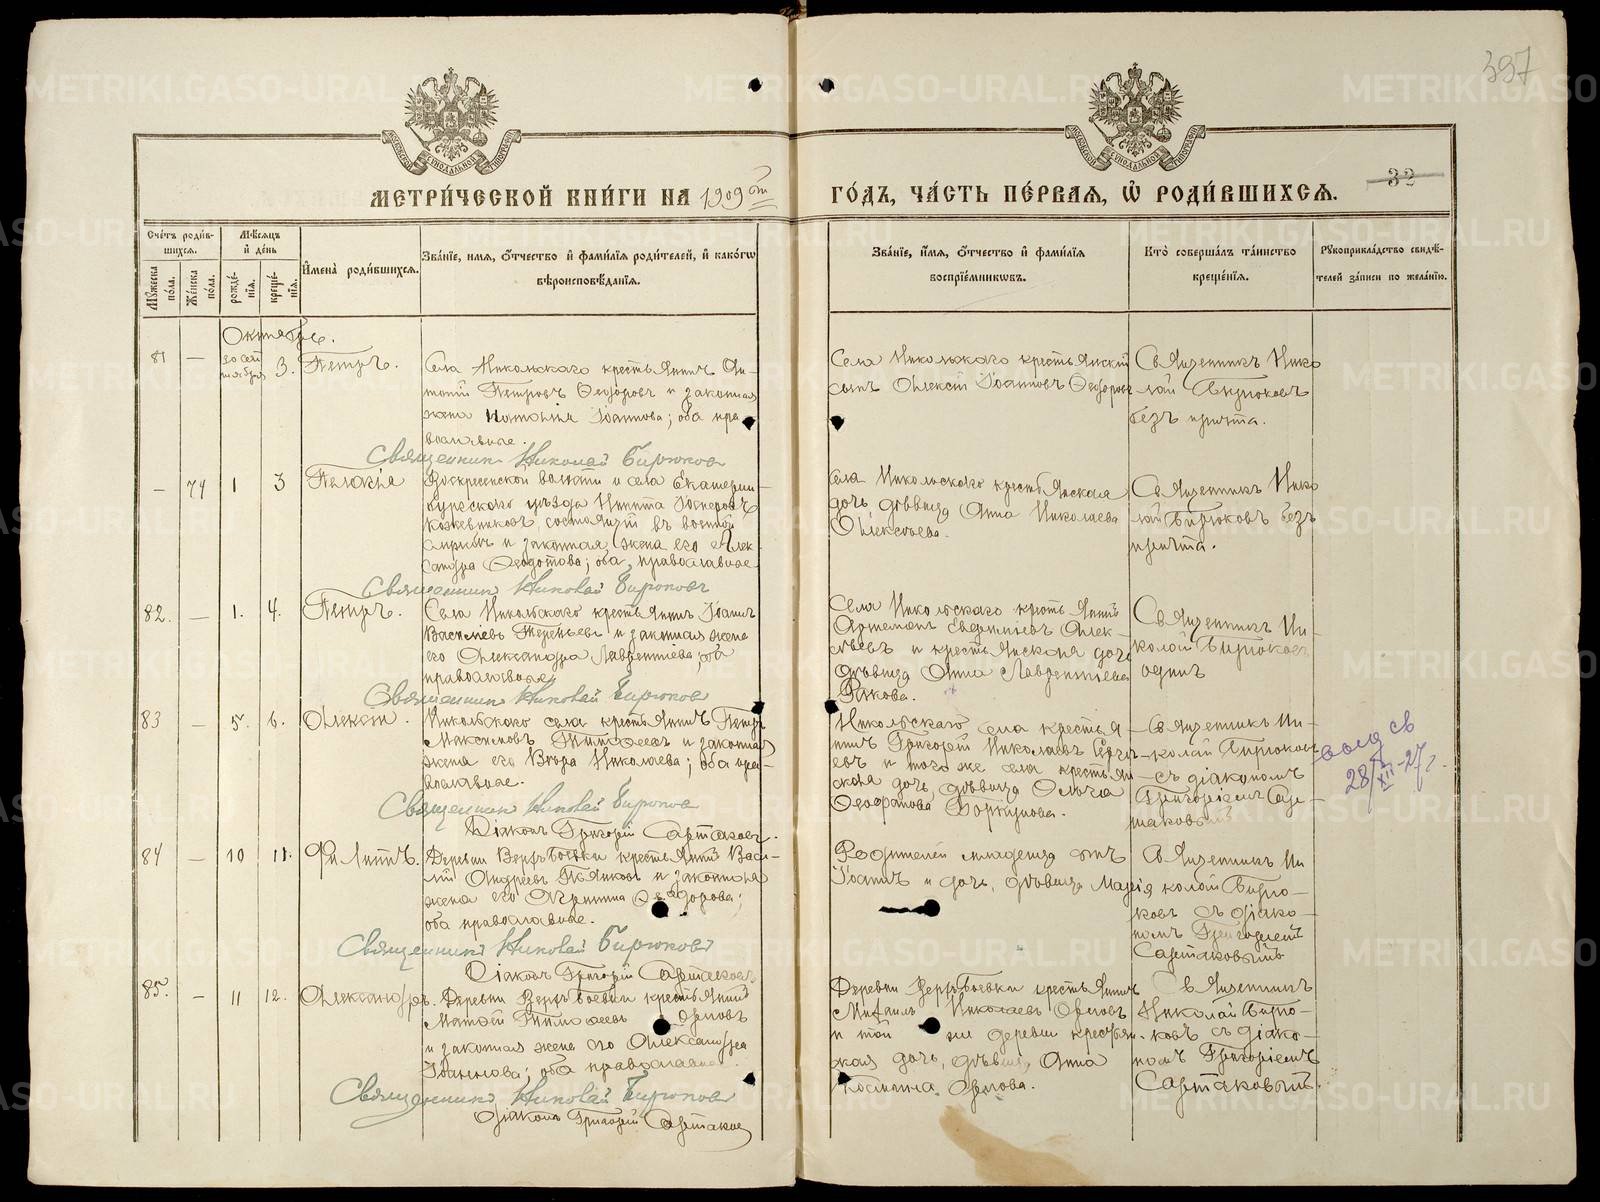 397
32
МЕТРИ́ЧЕСКОЙ КНИ́ГИ НА 1909 ый
ГО́ДЪ, ЧА́СТЬ ПЕ́РВАЯ, Ѽ РОДИ́ВШИХСѦ.
Сче́тъ роди́в-
шихсѧ.
Мꙋ́жеска по́ла.
Же́нска по́ла.
Мѣ́сѧцъ
и҆ де́нь
рожде́нїѧ.
креще́нїѧ.
И҆мена̀ роди́вшихсѧ.
Зва́нїе, имѧ, о҆́тчество и҆ фами́лїѧ роди́телей, и҆ како́гѡ
вѣроисповѣ́данїѧ.
Зва́нїе, и҆́мѧ, о҆́тчество и҆ фами́лїѧ
воспрїе́мникѡвъ.
Кто̀ соверша́лъ та́инство
креще́нїѧ.
Рꙋкоприкла́дство свидѣ́-
телей за́писи по жела́нїю.
Октябрь.
81 — 30 сен
тября 3. Петръ.
Села Никольскаго крестьянинъ Ан-
тоній Петровъ Ѳеодоровъ и законная
жена Наталія Іоаннова; оба пра-
вославные.
Священникъ Николай Бирюковъ
Села Никольскаго крестьянскій
сынъ Алексій Іоанновъ Ѳеодоровъ
Священникъ Нико
лай Бирюковъ
безъ причта.
— 74 1 3 Пелагія
Воскресенской волости и села Екатерин-
бургскаго уѣзда Никита
Кожевниковъ, состоящій въ военной
и законная жена его Алек-
сандра Ѳедотова; оба православные.
Священникъ Николай Бирюковъ
Села Никольскаго крестьянская
дочь, дѣвица Анна Николаева
Алексѣева.
Священникъ Нико
лай Бирюковъ безъ
причта.
82. — 1. 4. Петръ.
Села Никольскаго крестьянинъ Іоаннъ
Васильевъ Терентьевъ и законная жена
его Александра Лаврентіева; оба
православные.
Священникъ Николай Бирюковъ
Села Никольскаго крестьянинъ
Артемонъ Евфиміевъ Алек-
сѣевъ и крестьянская дочь
дѣвица Анна Лаврентіева
Рякова.
Священникъ Ни-
колай Бирюковъ
одинъ
83 — 5. 6. Алексій.
Никольскаго села крестьянинъ Петръ
Максимовъ Тимоѳеевъ и законная
жена его Вѣра Николаева; оба пра-
вославные.
Священникъ Николай Бирюковъ
Діаконъ Григорій Сартаковъ.
Никольскаго села крестья-
нинъ Григорій Николаевъ
евъ и того же села крестьян-
ская дочь, дѣвица Ольга
Ѳеофанова
Священникъ Ни-
колай Бирюковъ
съ діакономъ
Григоріемъ Сар-
таковымъ
св
28/XII-27 г.
84 — 10 11. Филиппъ.
Деревни Верхъ Боевки крестьянинъ Васи-
лій Андреевъ и законная
жена его Ѳеодорова;
оба православные.
Священникъ Николай Бирюковъ
Діаконъ Григорій Сартаковъ.
Родителей младенца сынъ
Іоаннъ и дочь, дѣвица Марія
Священникъ Ни
колай Бирю-
ковъ съ діако-
номъ Григоріемъ
Сартаковымъ
85. — 11 12. Александръ.
Деревни Верхъ Боевки крестьянинъ
Матѳей Тимоѳеевъ Орловъ
и законная жена его Александра
Іоаннова; оба православные.
Священникъ Николай Бирюковъ
Діаконъ Григорій Сартаковъ
Деревни Верхъ Боевки крестьянинъ
Михаилъ Николаевъ Орловъ
и той же деревни крестьян-
ская дочь, дѣвица Анна
Космина Орлова.
Священникъ
Николай Бирю-
ковъ съ діако-
номъ Григоріемъ
Сартаковымъ.
METRIKI.GASO-URAL.RU